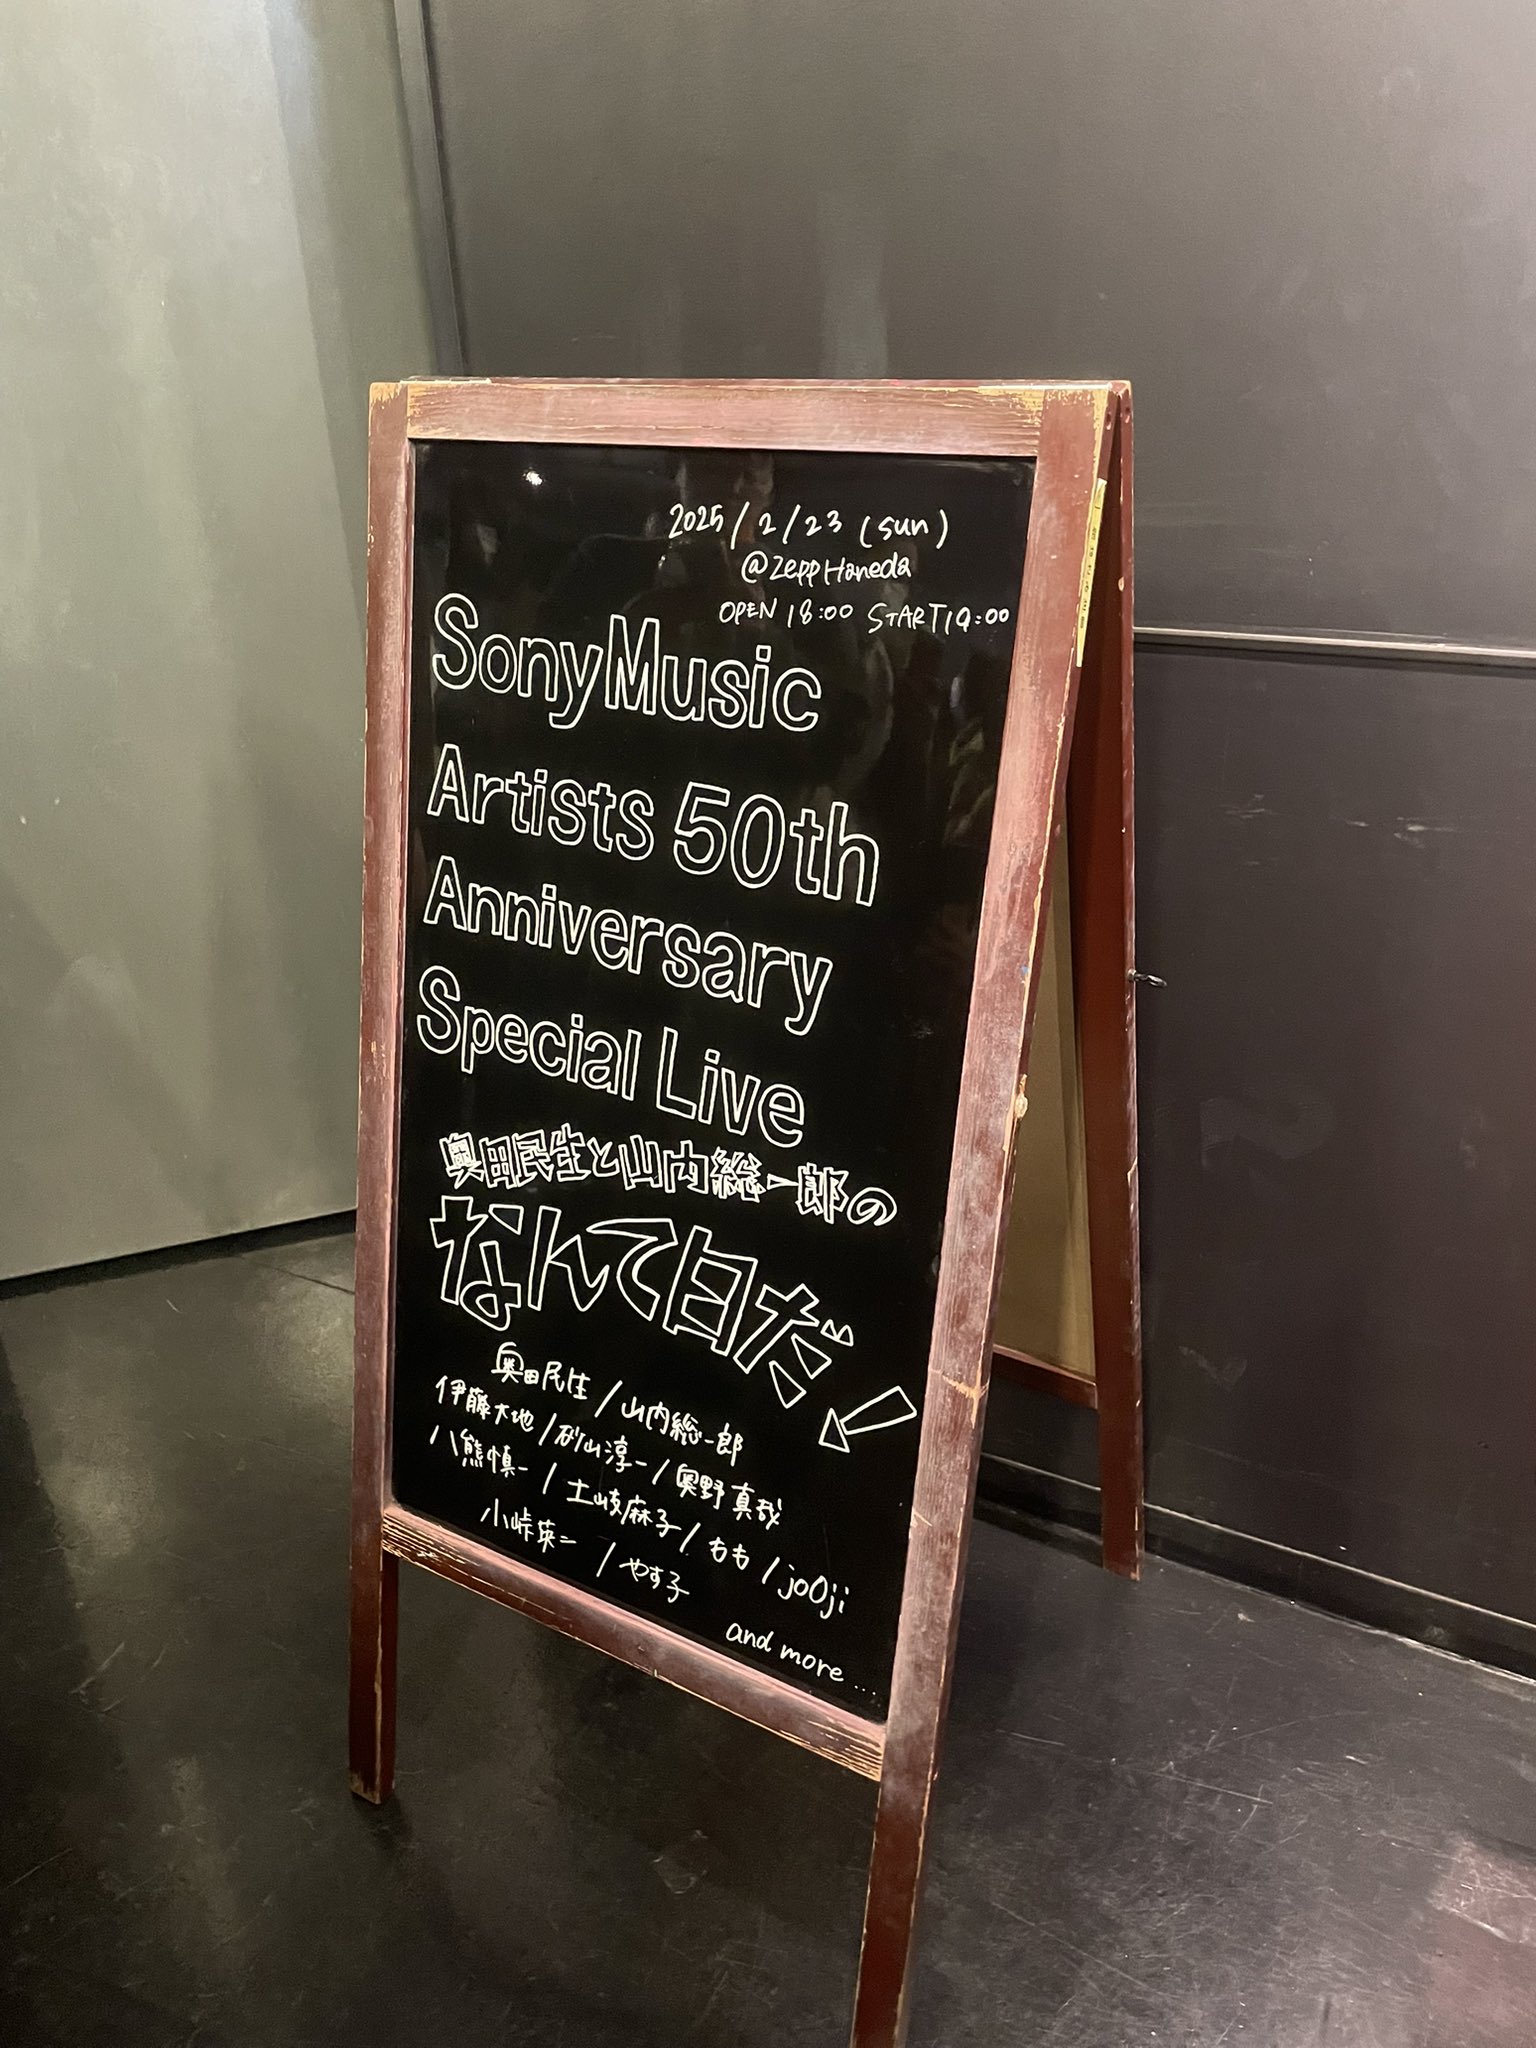 2025/2/23 (sun)
@Zepp Haneda
OPEN 18:00 START 19:00
Sony Music
Artists 50th
Anniversary
Special Live
奥田民生と山内総一郎の
なんて日だ!
奥田民生/山内総一郎
伊藤大地/砂山淳一/奥野真哉
八熊慎一/土岐麻子/もも/jo0ji
小峠英二/やす子
and more....